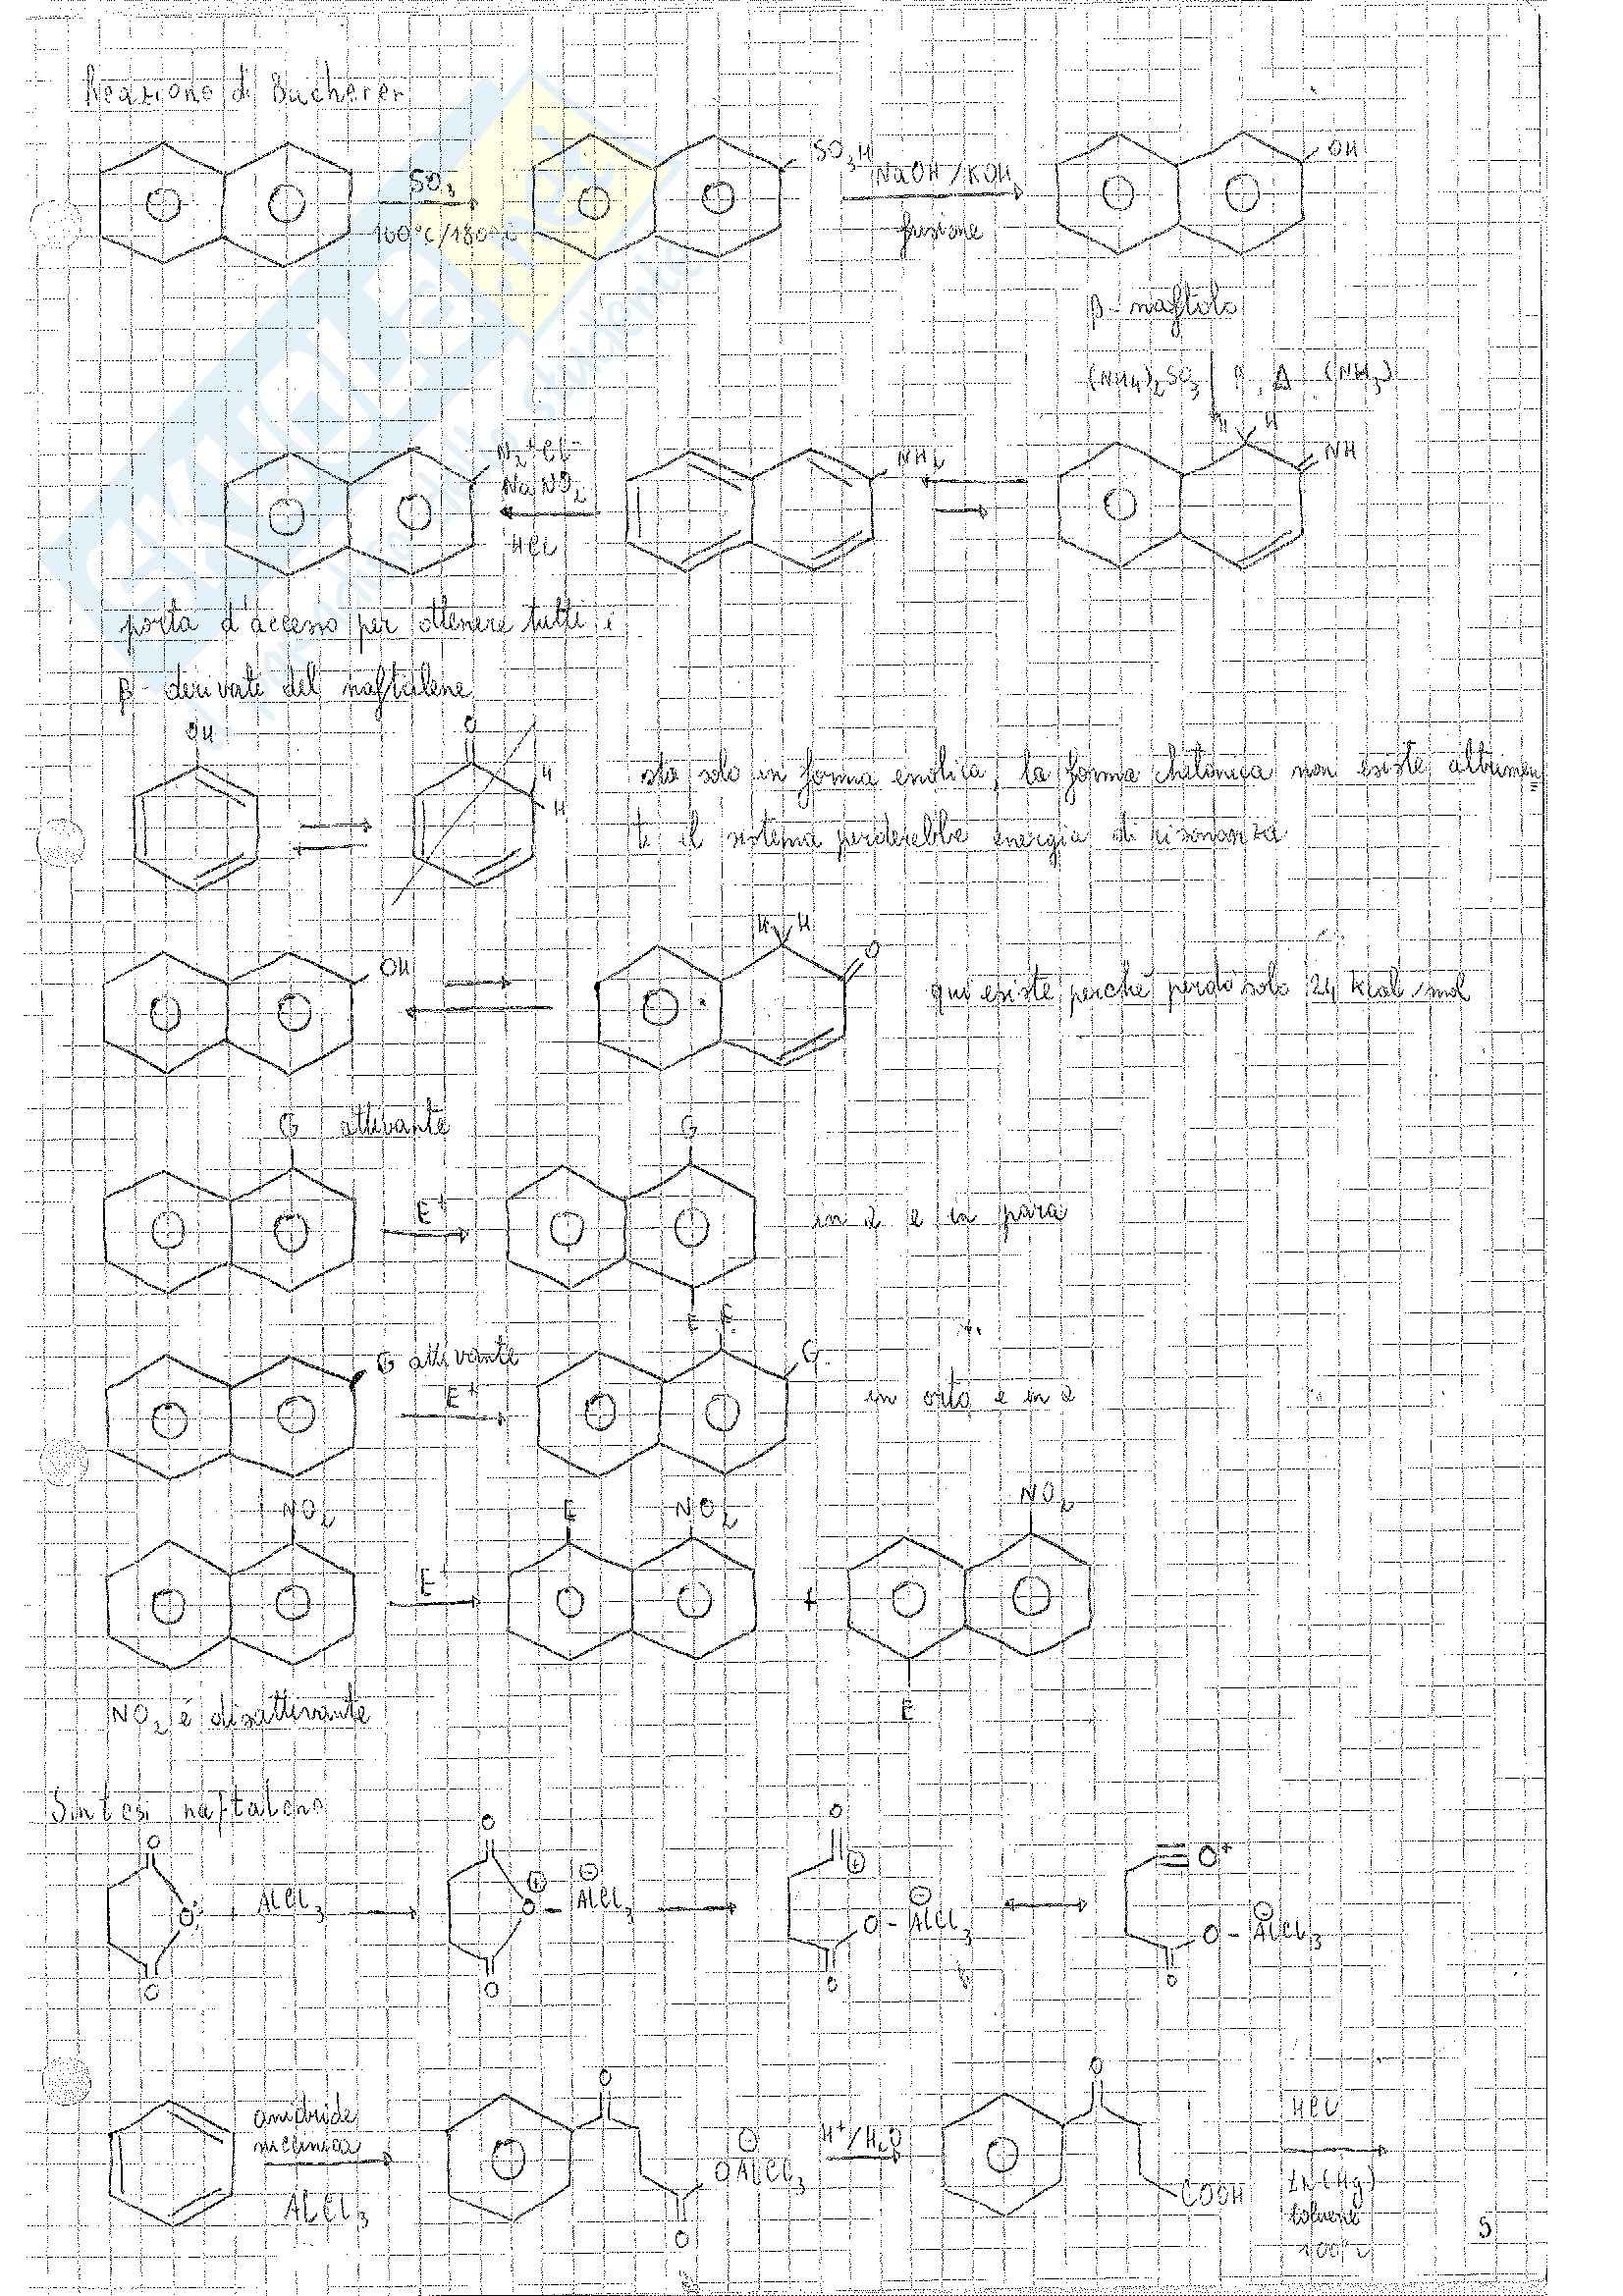 Reazione di Bucherer
SO3H
SO3
160°C/180°C
NaOH/KOH
fusione
OH
β-naftolo
(NH4)2SO3 , Δ (NH3)
N2+Cl-
NaNO2
HCl
NH2
H H
NH
porta d'accesso per ottenere tutti i
β-derivati del naftalene
OH
O
H
H
sta solo in forma enolica, la forma chetonica non esiste altrimen
ti il sistema perderebbe energia di risonanza
OH
H H
O
qui esiste perché perdo solo 24 kcal/mol
G attivante
E+
G
E
in 2 e in para
G attivante
E+
E
G
in orto e in 2
NO2
E+
E
NO2
+
NO2
E
NO2 è disattivante
Sintesi naftalene
O
O:
O
+ AlCl3
O
O⊕ - ⊖AlCl3
O
O
⊕
O - ⊖AlCl3
O
O+
O - ⊖AlCl3
O
anidride
succinica
AlCl3
O
⊖
OAlCl3
O
H+/H2O
O
COOH
HCl
Zn(Hg)
toluene
100°C
5